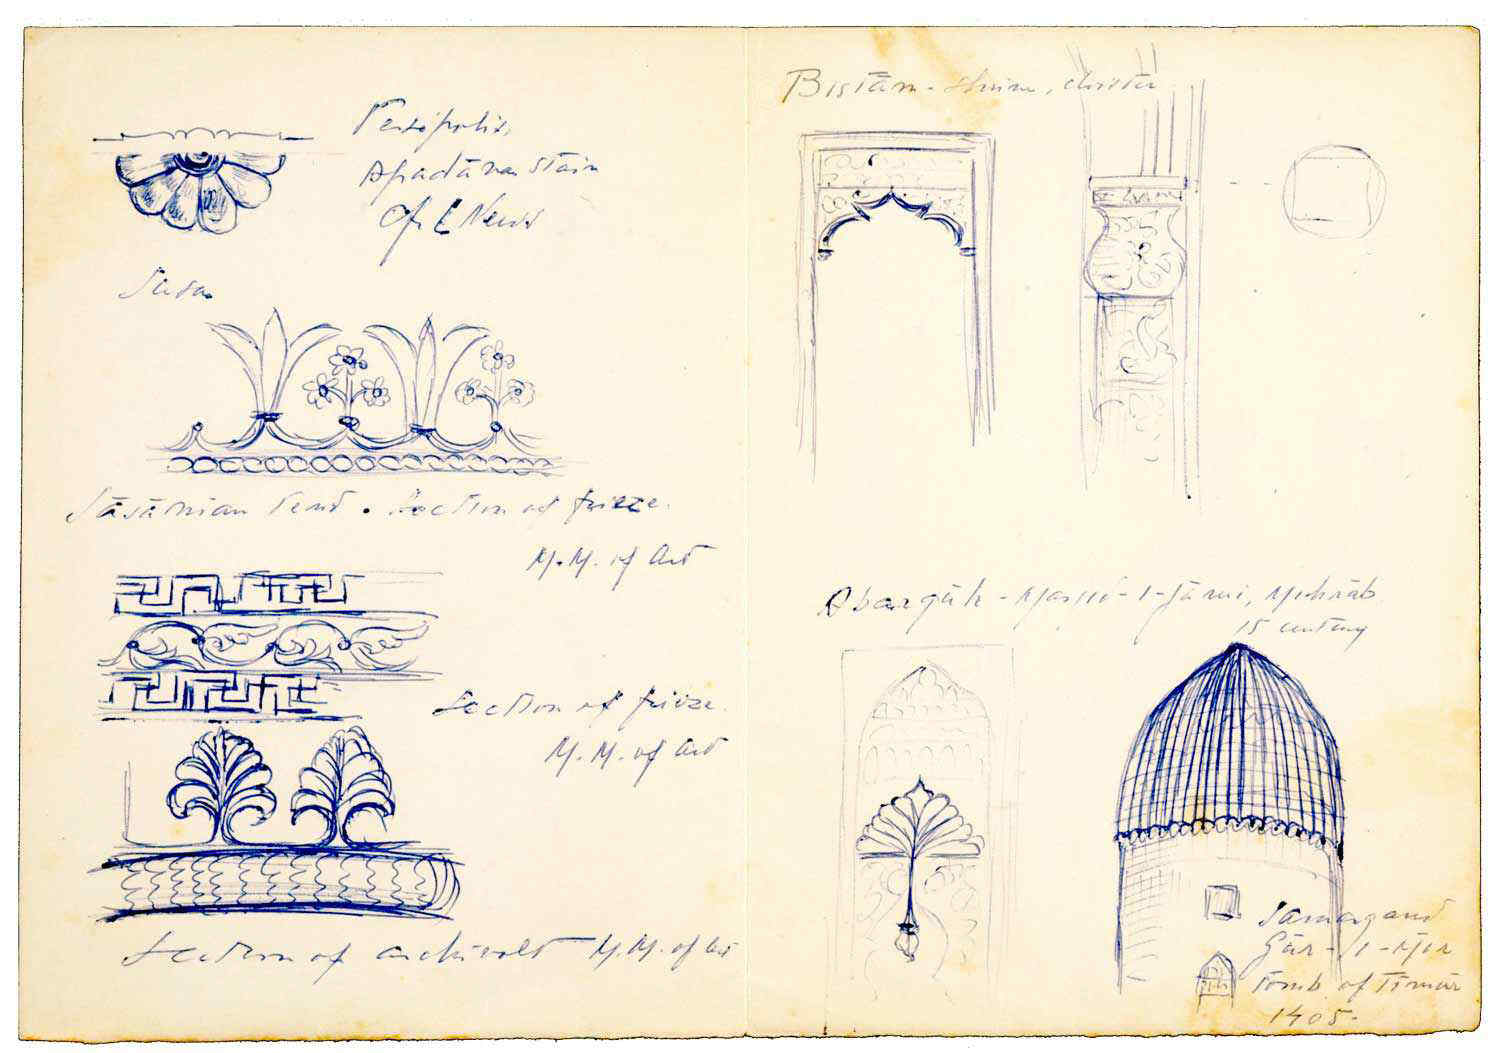 Persepolis,
Apadāna stair
Of E
Susa
Sāsānian Period. Section of frieze.
M.M. of Art
Section of frieze.
M.M. of Art
Section of archivolt M.M. of Art
Bistām - Shrine, cloister
Abarqūh - Masjid-i-Jāmi, Mihrāb
15 century
Samarqand
Gūr-i-Mir
Tomb of Timūr
1405.